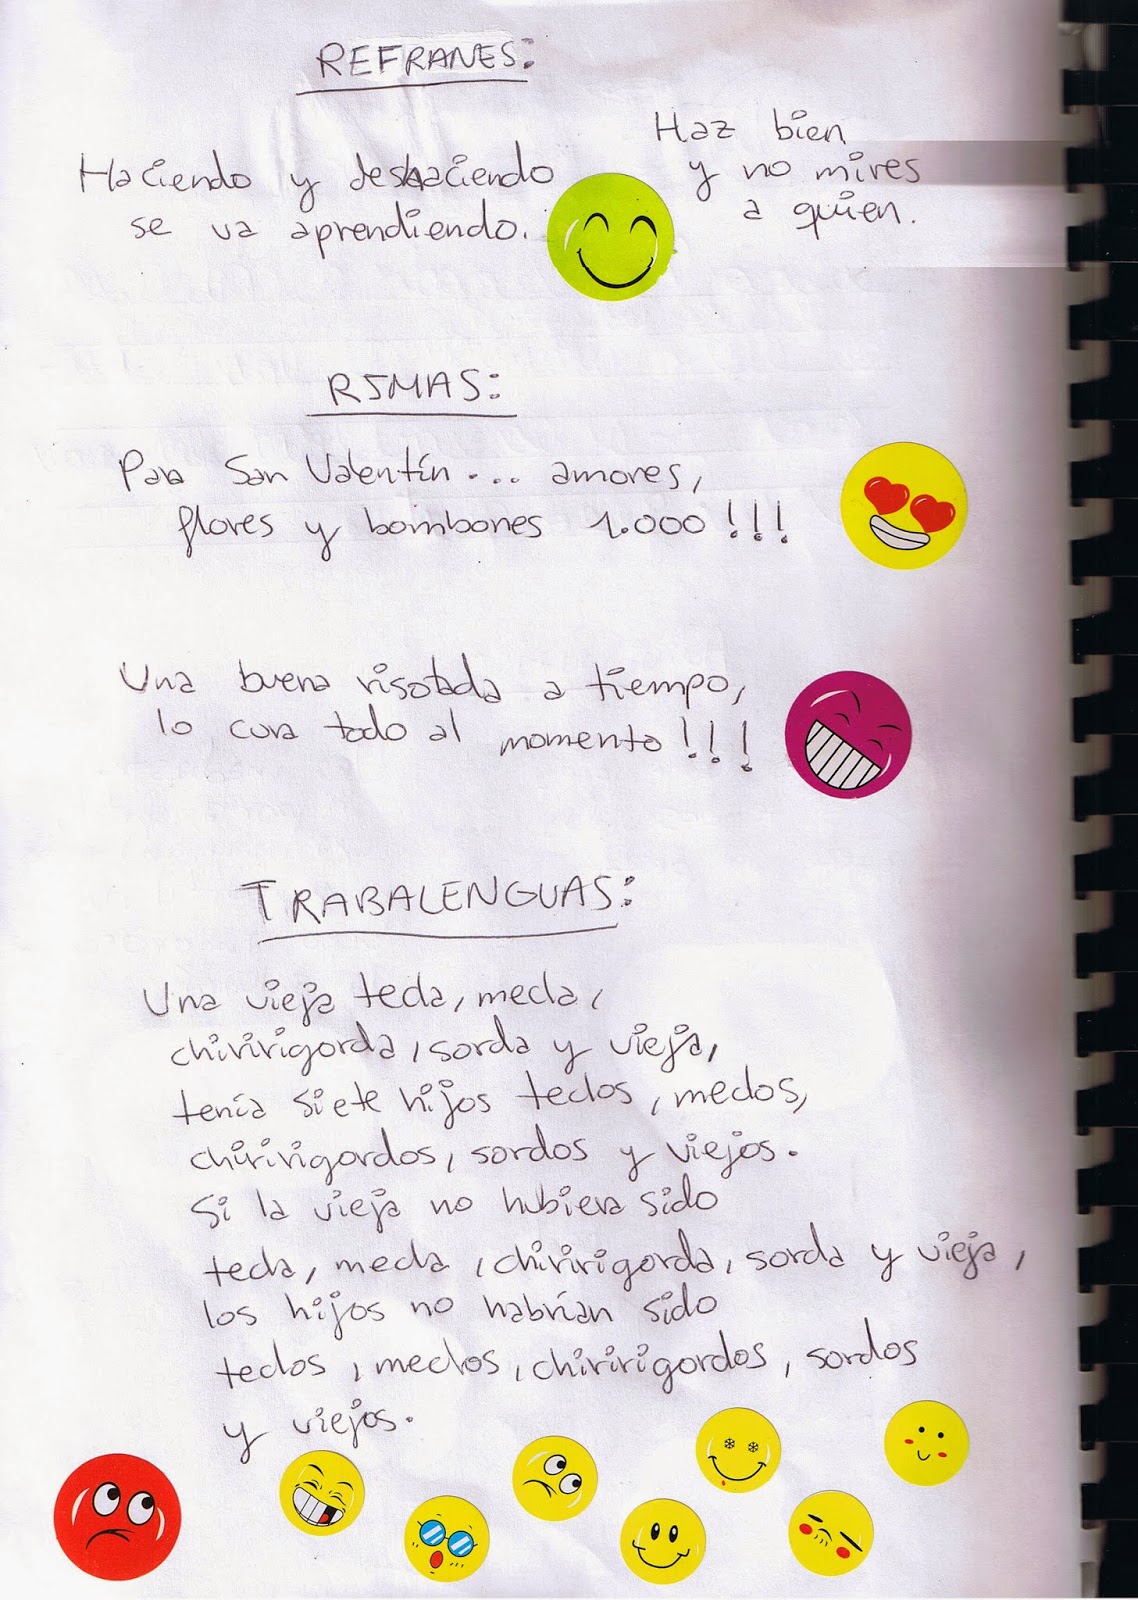 REFRANES:
Haciendo y deshaciendo
se va aprendiendo.
Haz bien
y no mires
a quien.
RIMAS:
Para San Valentín.... amores,
flores y bombones 1.000!!!
Una buena risotada a tiempo,
lo cura todo al momento!!!
TRABALENGUAS:
Una vieja tecla, mecla,
chiririgorda, sorda y vieja,
tenía siete hijos teclos, meclos,
chiririgordos, sordos y viejos.
Si la vieja no hubiera sido
tecla, mecla, chiririgorda, sorda y vieja,
los hijos no habrían sido
teclos, meclos, chiririgordos, sordos
y viejos.